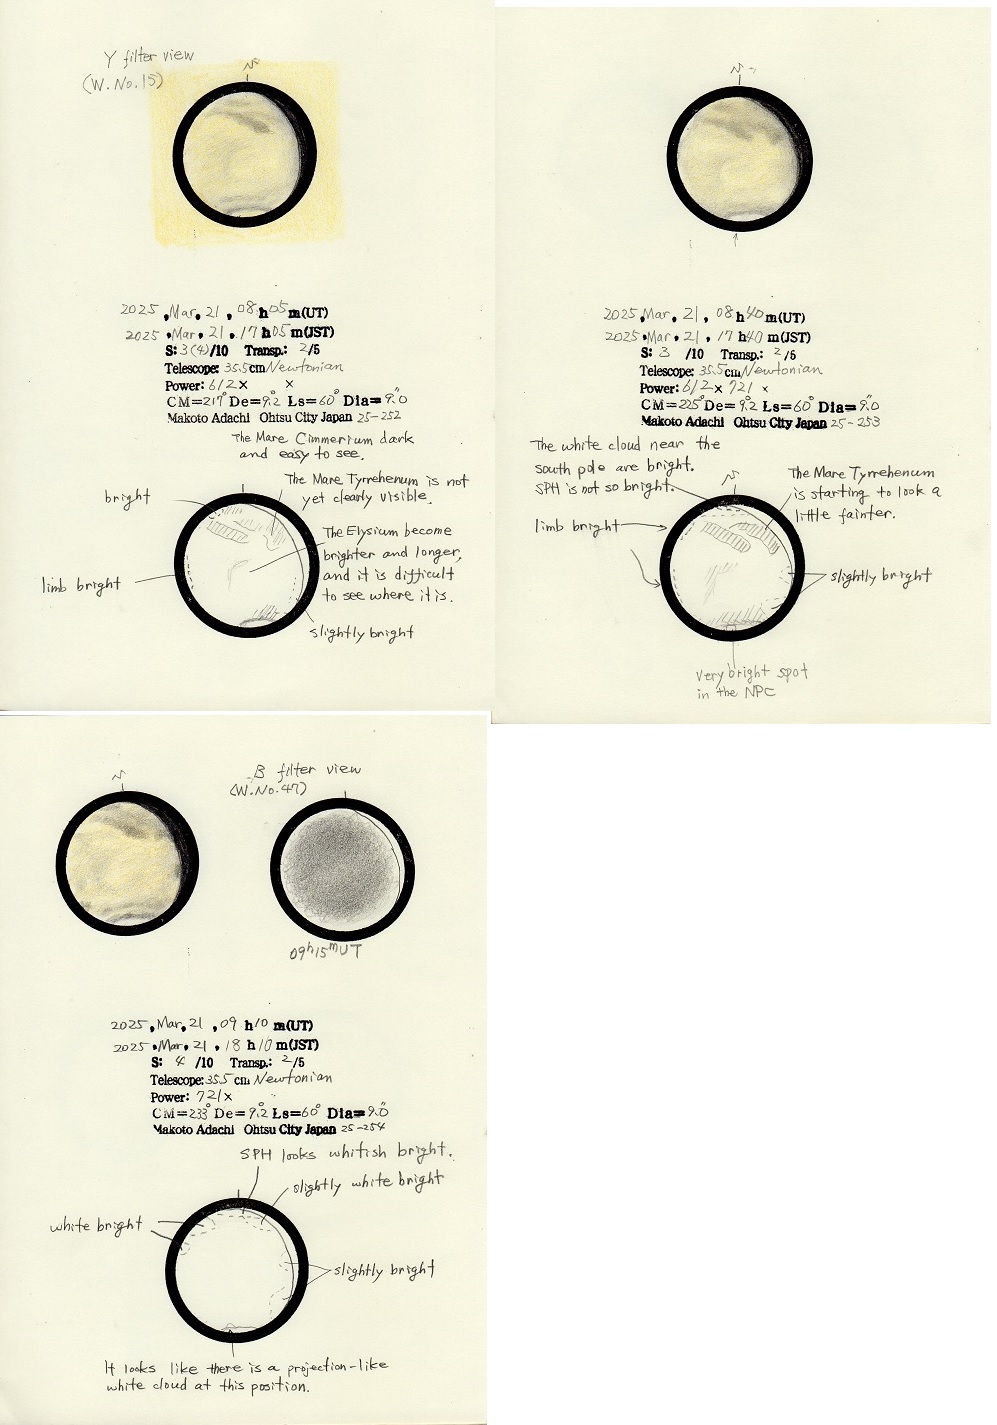 Y filter view
(W.No.15)
N
2025 ,Mar, 21 , 08 h 05 m(UT)
2025 .Mar. 21 . 17 h 05 m(JST)
S: 3(4)/10 Transp.: 2/5
Telescope: 35.5cm Newtonian
Power: 612× ×
CM=217° De=9.2° Ls=60° Dia=9.0"
Makoto Adachi Ohtsu City Japan 25-252
The Mare Cimmerium dark
and easy to see.
The Mare Tyrrehenum is not
yet clearly visible.
bright
The Elysium become
brighter and longer,
and it is difficult
to see where it is.
limb bright
slightly bright
N
2025 ,Mar, 21 , 08 h 40 m(UT)
2025 .Mar. 21 . 17 h 40 m(JST)
S: 3 /10 Transp.: 2/5
Telescope: 35.5cm Newtonian
Power: 612× 721 ×
CM=225° De=9.2° Ls=60° Dia=9.0"
Makoto Adachi Ohtsu City Japan 25-253
The white cloud near the
south pole are bright.
SPH is not so bright.
N
The Mare Tyrrehenum
is starting to look a
little fainter.
limb bright
slightly bright
very bright spot
in the NPC
N
B filter view
(W.No.47)
09h15mUT
2025 ,Mar, 21 , 09 h 10 m(UT)
2025 .Mar. 21 . 18 h 10 m(JST)
S: 4 /10 Transp.: 2/5
Telescope: 35.5 cm Newtonian
Power: 721×
CM=233° De=9.2° Ls=60° Dia=9.0"
Makoto Adachi Ohtsu City Japan 25-254
SPH looks whitish bright.
slightly white bright
white bright
slightly bright
It looks like there is a projection-like
white cloud at this position.